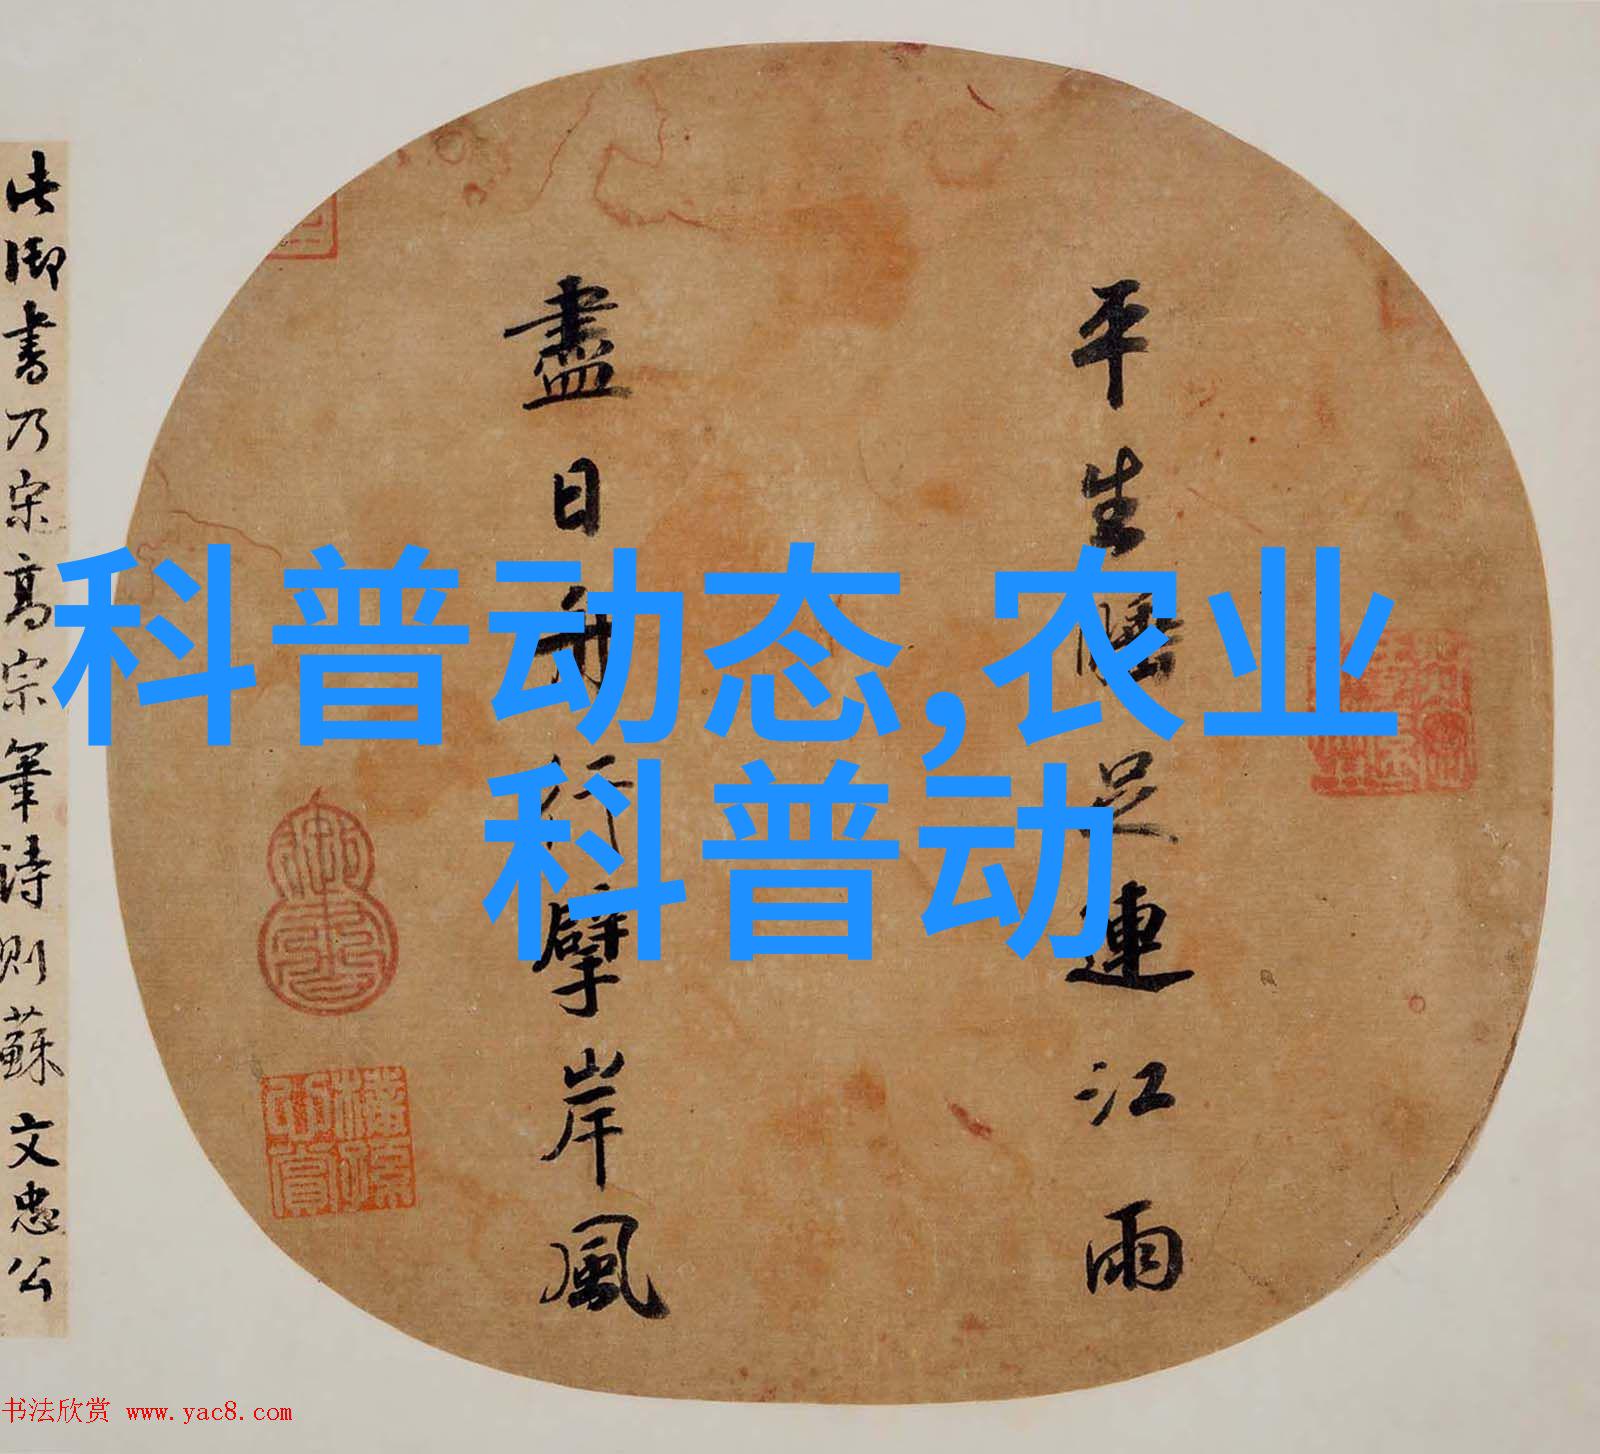 科普动态,农业
科普动
平生睡足連江雨
盡日舟行擘岸風
此御書乃宋高宗筆詩則蘇文忠公
御書
书法欣赏 www.yac8.com